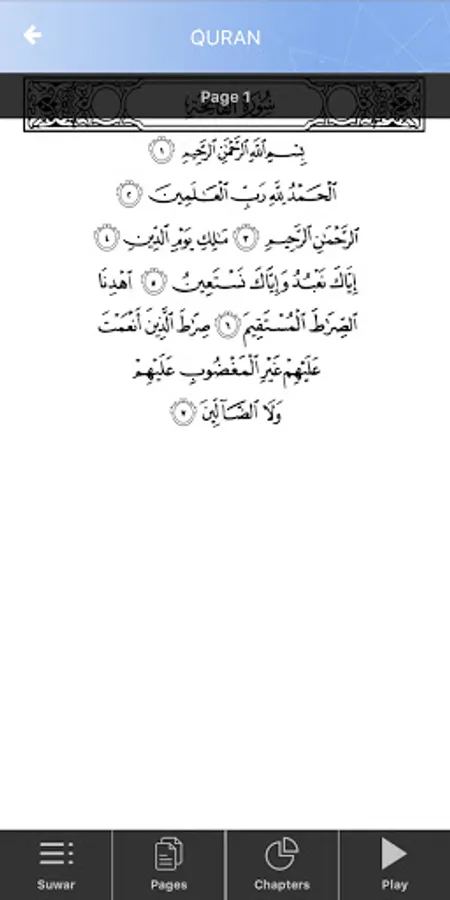 QURAN
Page 1
سُورَةُ الفَاتِحَةِ
بِسْمِ ٱللَّهِ ٱلرَّحْمَٰنِ ٱلرَّحِيمِ ١
ٱلْحَمْدُ لِلَّهِ رَبِّ ٱلْعَٰلَمِينَ ٢
ٱلرَّحْمَٰنِ ٱلرَّحِيمِ ٣ مَٰلِكِ يَوْمِ ٱلدِّينِ ٤
إِيَّاكَ نَعْبُدُ وَإِيَّاكَ نَسْتَعِينُ ٥ ٱهْدِنَا
ٱلصِّرَٰطَ ٱلْمُسْتَقِيمَ ٦ صِرَٰطَ ٱلَّذِينَ أَنْعَمْتَ
عَلَيْهِمْ غَيْرِ ٱلْمَغْضُوبِ عَلَيْهِمْ
وَلَا ٱلضَّآلِّينَ ٧
Suwar
Pages
Chapters
Play